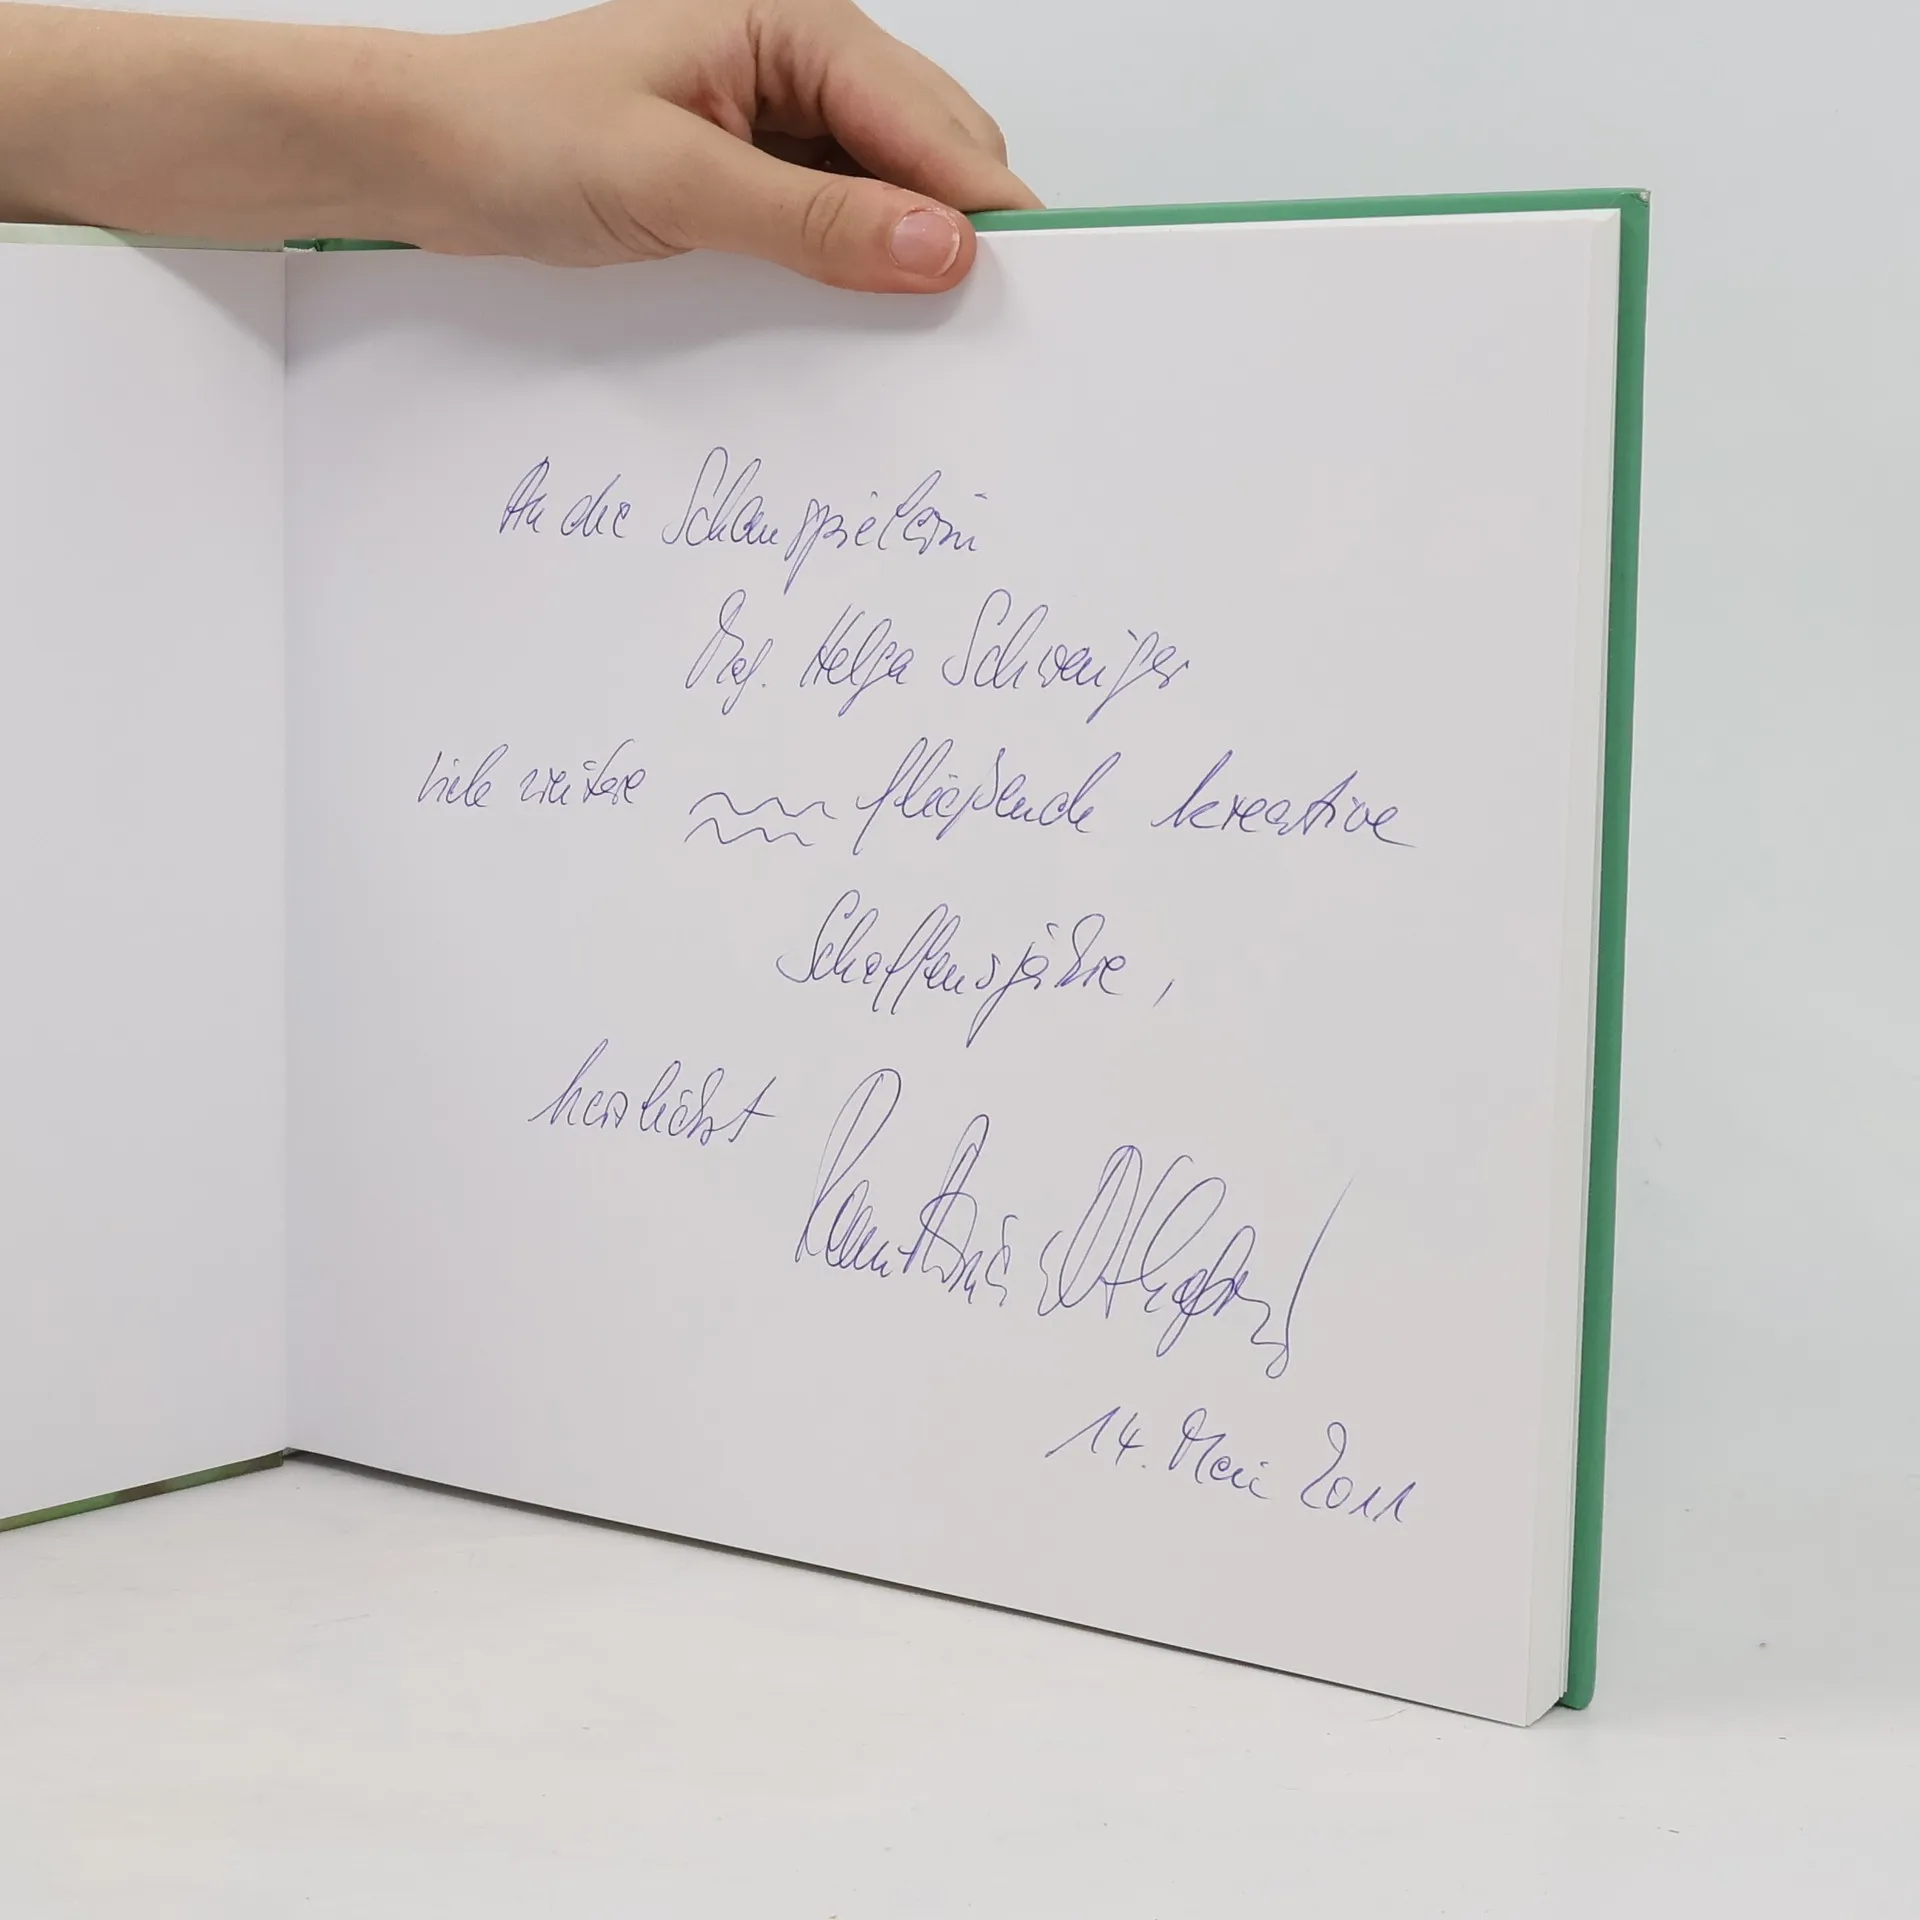 An die Schauspielerin
Prof. Helga Schwaiger
viele weitere fließende kreative
Schaffensjahre,
herzlichst
14. Mai 2011